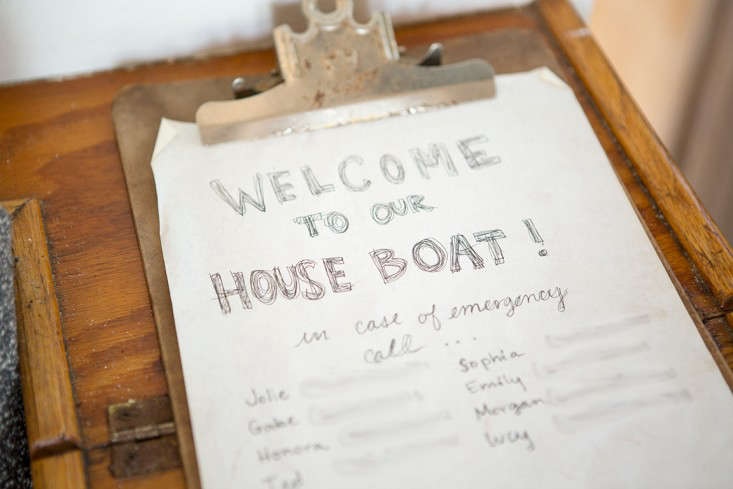 WELCOME
TO OUR
HOUSE BOAT!
in case of emergency
call ...
Jolie
Gabe
Honora
Ted
Sophia
Emily
Morgan
Lucy